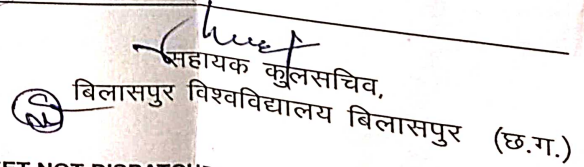 सहायक कुलसचिव,
बिलासपुर विश्वविद्यालय बिलासपुर (छ.ग.)